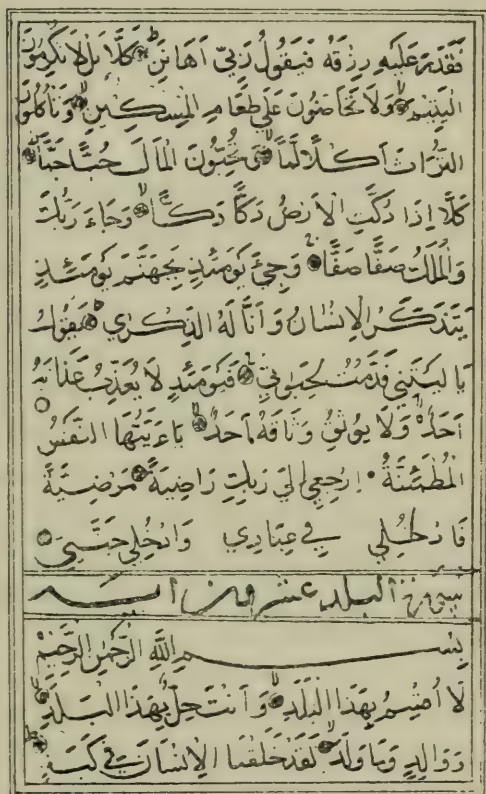 فَقَدَرَ عَلَيْهِ رِزْقَهُ فَيَقُولُ رَبِّيٓ اَهَانَنِ كَلَّا بَلْ لَا تُكْرِمُونَ
الْيَتِيْمَ وَلَا تَحَاضُّونَ عَلَي طَعَامِ الْمِسْكِيْنِ وَتَأْكُلُونَ
التُّرَاثَ اَكْلًا لَّمًّا وَتُحِبُّونَ الْمَالَ حُبًّا جَمًّا
كَلَّا إِذَا دُكَّتِ الْاَرْضُ دَكًّا دَكًّا وَجَاءَ رَبُّكَ
وَالْمَلَكُ صَفًّا صَفًّا وَجِيءَ يَوْمَئِذٍ بِجَهَنَّمَ يَوْمَئِذٍ
يَتَذَكَّرُ الْاِنْسَانُ وَاَنَّا لَهُ الذِّكْرٰي يَقُولُ
يَا لَيْتَنِي قَدَّمْتُ لِحَيٰوتِيْ فَيَوْمَئِذٍ لَا يُعَذِّبُ عَذَابَهُ
اَحَدٌ وَلَا يُوثِقُ وَثَاقَهُ اَحَدٌ يَاءَيَّتُهَا النَّفْسُ
الْمُطْمَئِنَّةُ اِرْجِعِي اِلَي رَبِّكِ رَاضِيَةً مَرْضِيَّةً
فَادْخُلِي فِي عِبَادِي وَادْخُلِي جَنَّتِيْ
سورة البلد عشرون اية
بِسْمِ اللّٰهِ الرَّحْمٰنِ الرَّحِيْمِ
لَا اُقْسِمُ بِهَذَا الْبَلَدِ وَاَنْتَ حِلٌّ بِهَذَا الْبَلَدِ
وَوَالِدٍ وَمَا وَلَدَ لَقَدْ خَلَقْنَا الْاِنْسَانَ فِي كَبَدٍ